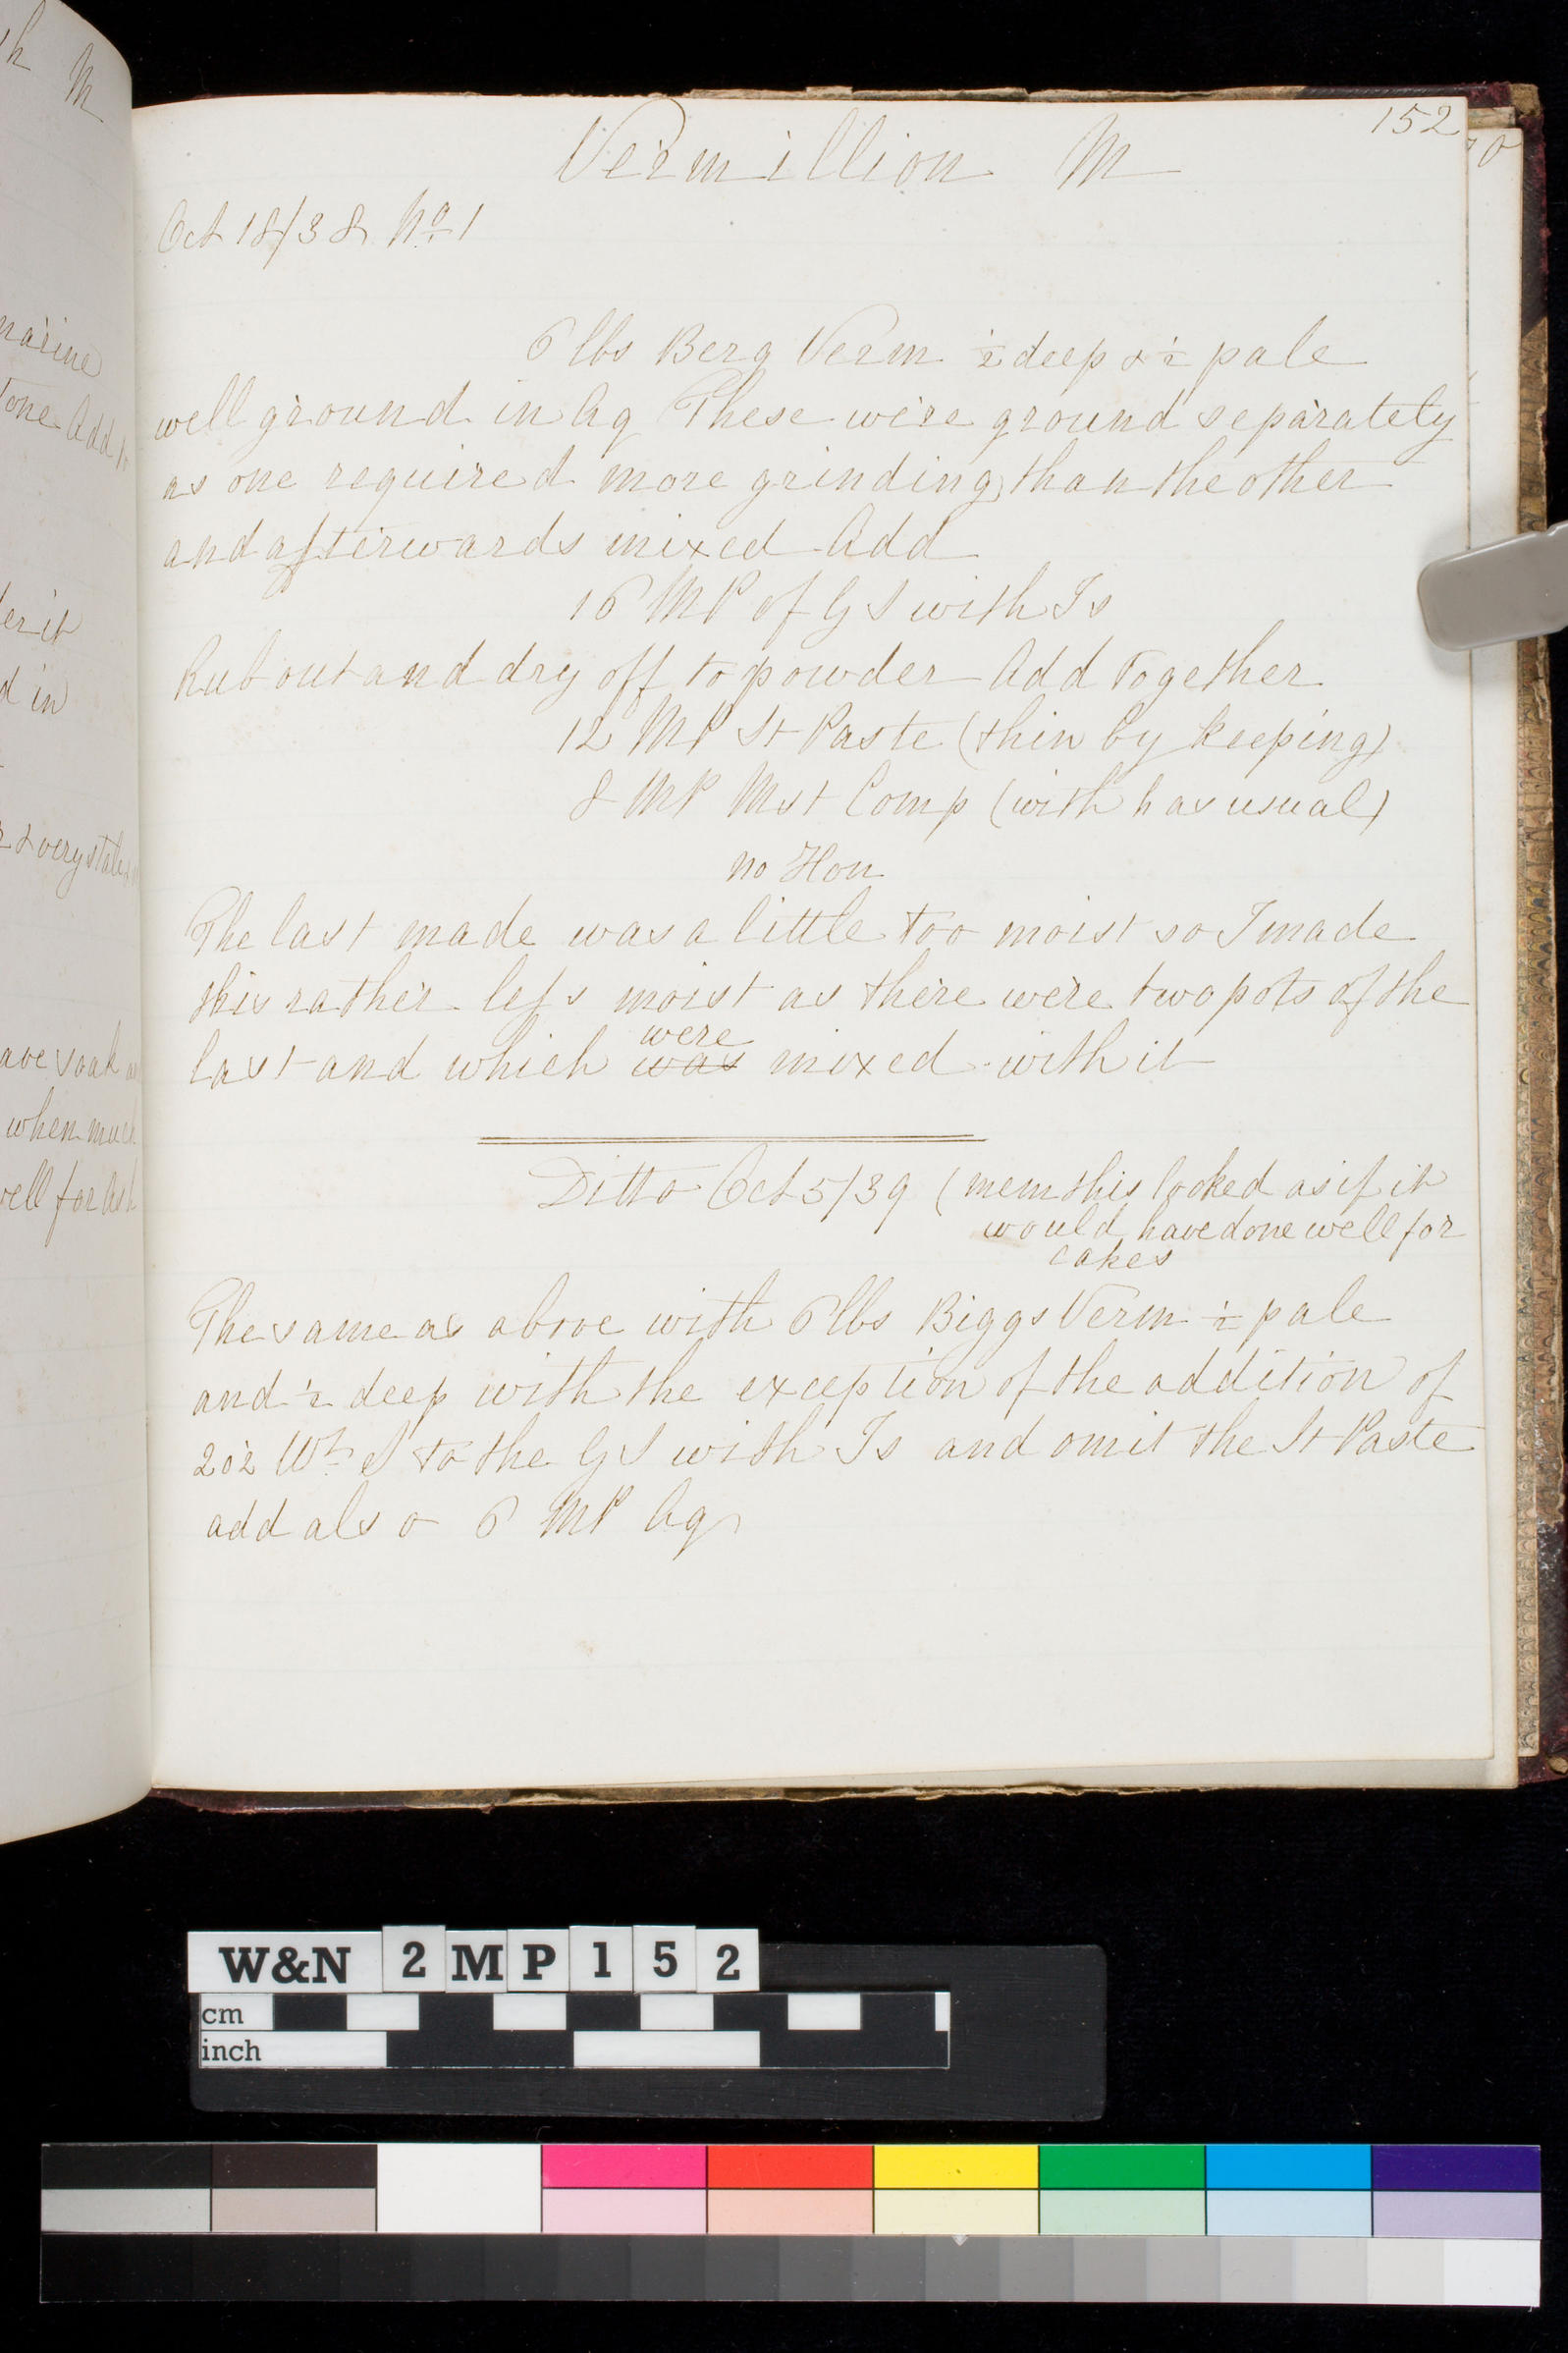 152
Vermillion M
Oct 18/38 No. 1
6 lbs Berg Verm ½ deep & ½ pale
well ground in Aq These were ground separately
as one required more grinding than the other
and afterwards mixed Add
16 MP of G S with Is
Rub out and dry off to powder Add together
12 MP St Paste (thin by keeping)
8 MP Mst Comp (with h as usual)
no Hon
The last made was a little too moist so I made
this rather less moist as there were two pots of the
last and which was were mixed with it
Ditto Oct 5/39 (mem this looked as if it
would have done well for
cakes
The same as above with 6 lbs Biggs Verm ½ pale
and ½ deep with the exception of the addition of
2 oz Wt S to the G S with Is and omit the St Paste
add also 6 MP Aq
h M
marine
Tone Add
er it
d in
& very stale
ave soak
when much
well for Ash
W&N 2MP152
cm
inch